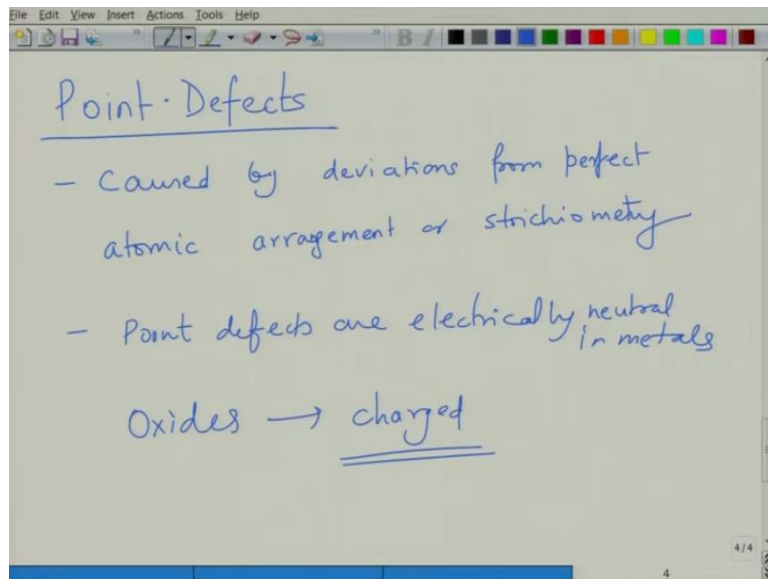 File Edit View Insert Actions Tools Help
B I
Point-Defects
- Caused by deviations from perfect
atomic arragement or stoichiomety
- Point defects are electrically neutral
in metals
Oxides → charged
4/4
4